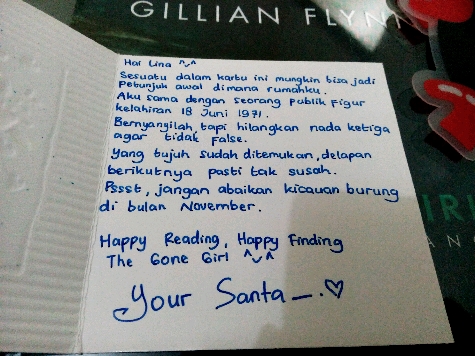 GILLIAN FLYNN
Hai Lina ^^
Sesuatu dalam kartu ini mungkin bisa jadi
petunjuk awal dimana rumahku.
Aku sama dengan seorang publik figur
kelahiran 18 Juni 1971.
Bernyanyilah, tapi hilangkan nada ketiga
agar tidak false.
Yang tujuh sudah ditemukan, delapan
berikutnya pasti tak susah.
Pssst, jangan abaikan kicauan burung
di bulan November.
Happy Reading, Happy Finding
The Gone Girl ^_^
Your Santa _. ♡